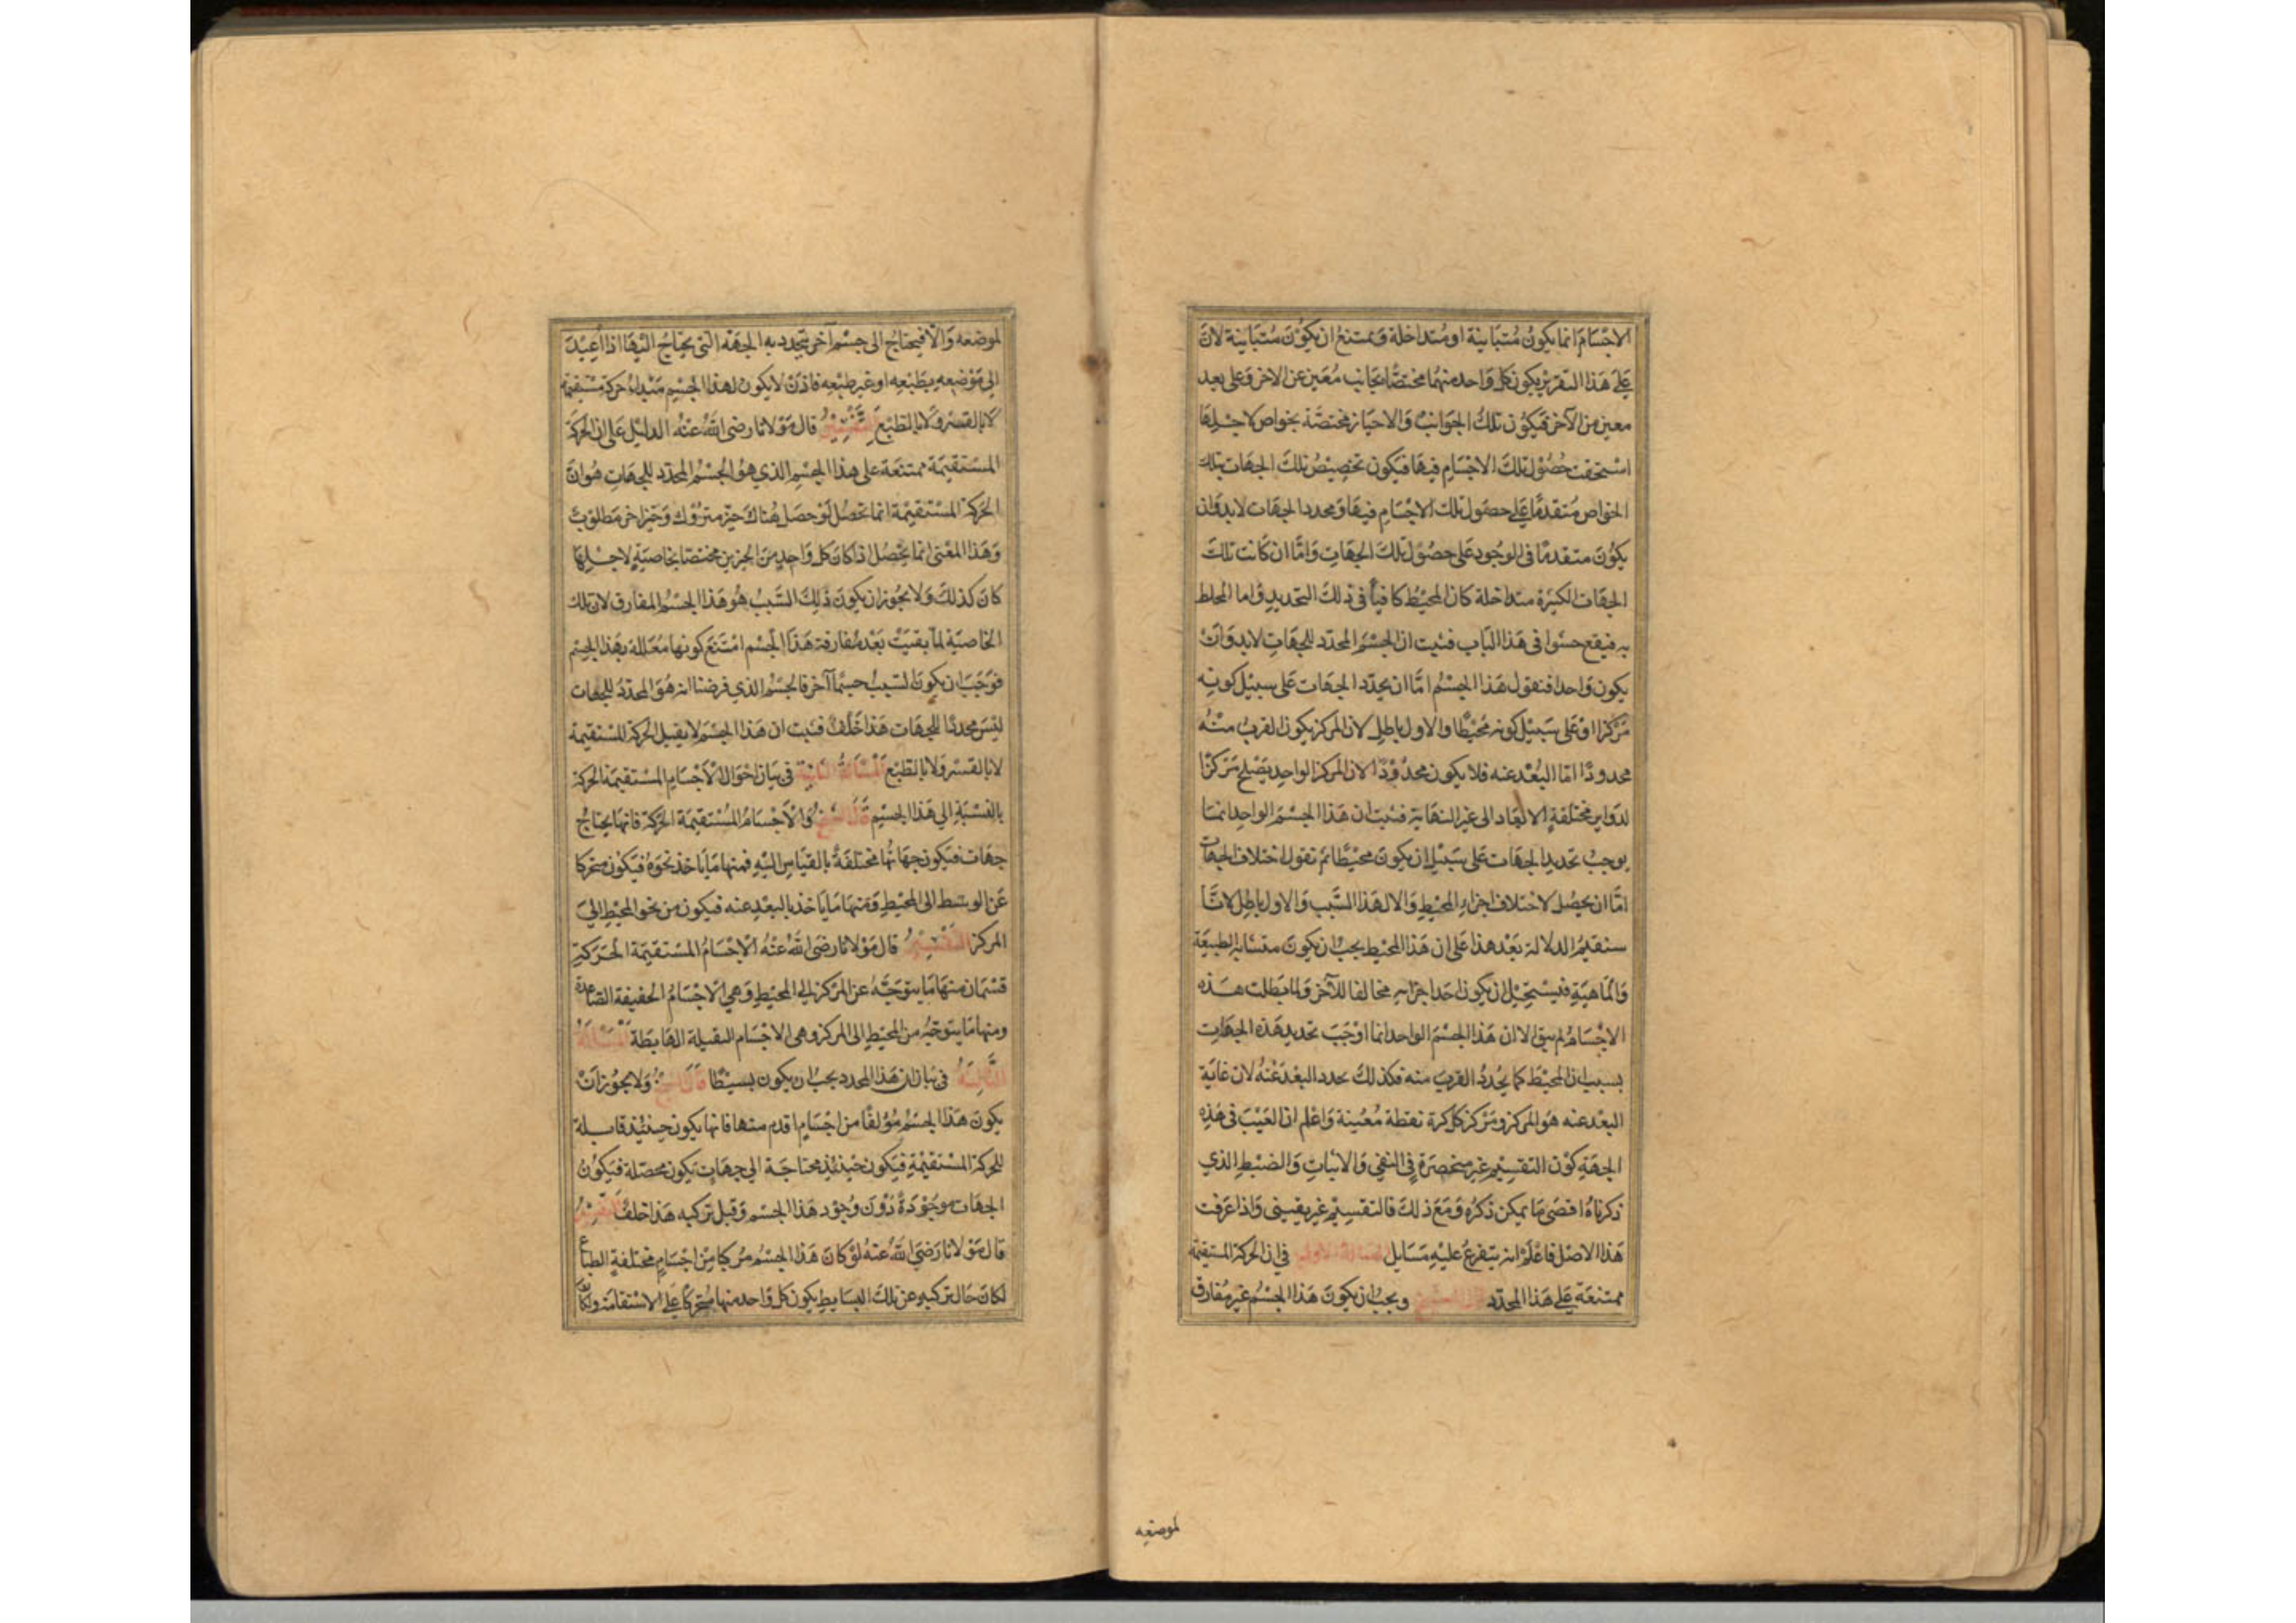 الاجسام انما يكون متباينة او متداخلة ويمتنع ان يكون متباينة لان
على هذا التقرير يكون كل واحد منهما مختصا بجانب معين عن الاخر وعلى بعد
معين من الآخر فيكون تلك الجوانب والاحياز مختصة بخواص لاجلها
استحقت حصول تلك الاجسام فيها فيكون تخصيص تلك الجهات بتلك
الخواص متقدما على حصول تلك الاجسام فيها ومحدد الجهات لابد وان
يكون متقدما فى الوجود على حصول تلك الجهات واما ان كانت تلك
الجهات الكثيرة متداخلة كان المحيط كافيا فى ذلك التحديد واما المحاط
به فيقع حشوا فى هذا الباب فثبت ان الجسم المحدد للجهات لابد وان
يكون واحدا فنقول هذا الجسم اما ان يحدد الجهات على سبيل كونه
مركزا او على سبيل كونه محيطا والاول باطل لان المركز يكون القرب منه
محدودا اما البعد عنه فلا يكون محدودا لان المركز الواحد يصلح مركزا
لدواير مختلفة الابعاد الى غير النهاية فثبت ان هذا الجسم الواحد انما
يوجب تحديد الجهات على سبيل ان يكون محيطا ثم نقول اختلاف الجهات
اما ان يحصل لاختلاف اجزاء المحيط والا لهذا السبب والاول باطل لانا
سنقيم الدلالة بعد هذا على ان هذا المحيط يجب ان يكون متشابه الطبيعة
والماهية فيستحيل ان يكون احد اجزايه مخالفا للآخر ولما بطلت هذه
الاجسام لم يبق الا ان هذا الجسم الواحد انما اوجب تحديد هذه الجهات
بسبب ان المحيط كما يحدد القرب منه فكذلك يحدد البعد عنه لان غاية
البعد عنه هو المركز ومركز كل كرة نقطة معينة واعلم ان العيب فى هذه
الجهة كون التقسيم غير منحصرة فى النفى والاثبات والضبط الذي
ذكرناه اقصى ما يمكن ذكره ومع ذلك فالتقسيم غير يقينى واذا عرفت
هذا الاصل فاعلم انه يتفرع عليه مسايل المسألة الاولى فى ان الحركة المستقيمة
ممتنعة على هذا المحدد قال الشيخ ويجب ان يكون هذا الجسم غير مفارق
لموضعه
لموضعه والا فيحتاج الى جسم آخر يتحدد به الجهة التى يحتاج اليها اذا أعيد
الى موضعه بطبعه او غير طبعه فاذن لا يكون لهذا الجسم مبداء حركة مستقيمة
لا بالقسر ولا بالطبع التفسير قال مولانا رضى الله عنه الدليل على ان الحركة
المستقيمة ممتنعة على هذا الجسم الذي هو الجسم المحدد للجهات هو ان
الحركة المستقيمة انما تحصل لو حصل هناك حيز متروك وحيز اخر مطلوب
وهذا المعنى انما يحصل اذا كان كل واحد من الحيزين مختصا بخاصية لاجلها
كان كذلك ولا يجوز ان يكون ذلك السبب هو هذا الجسم المفارق لان تلك
الخاصية لما بقيت بعد مفارقة هذا الجسم امتنع كونها معللة بهذا الجسم
فوجب ان يكون السبب جسما آخر فالجسم الذي فرضنا انه هو المحدد للجهات
ليس محددا للجهات هذا خلف فثبت ان هذا الجسم لا يقبل الحركة المستقيمة
لا بالقسر ولا بالطبع المسألة الثانية فى بيان احوال الاجسام المستقيمة الحركة
بالنسبة الى هذا الجسم قال الشيخ والاجسام المستقيمة الحركة فانها يحتاج
جهات فيكون جهاتها مختلفة بالقياس اليه فمنها ما ياخذ نحوه فيكون متحركا
عن الوسط الى المحيط ومنها ما ياخذ بالبعد عنه فيكون من نحو المحيط الى
المركز التفسير قال مولانا رضى الله عنه الاجسام المستقيمة الحركة
قسمان منها ما يتوجه عن المركز الى المحيط وهي الاجسام الخفيفة الصاعدة
ومنها ما يتوجه من المحيط الى المركز وهى الاجسام الثقيلة الهابطة المسألة
الثالثة فى بيان ان هذا المحدد يجب ان يكون بسيطا قال الشيخ ولا يجوز ان
يكون هذا الجسم مؤلفا من اجسام اقدم منها فانها يكون حينئذ قابلة
للحركة المستقيمة فيكون حينئذ محتاجة الى جهات يكون محصلة فيكون
الجهات موجودة دون وجود هذا الجسم وقبل تركبه هذا خلف التفسير
قال مولانا رضى الله عنه لو كان هذا الجسم مركبا من اجسام مختلفة الطباع
لكان حال تركبه عن تلك البسايط يكون كل واحد منها متحركا على الاستقامة ولكان